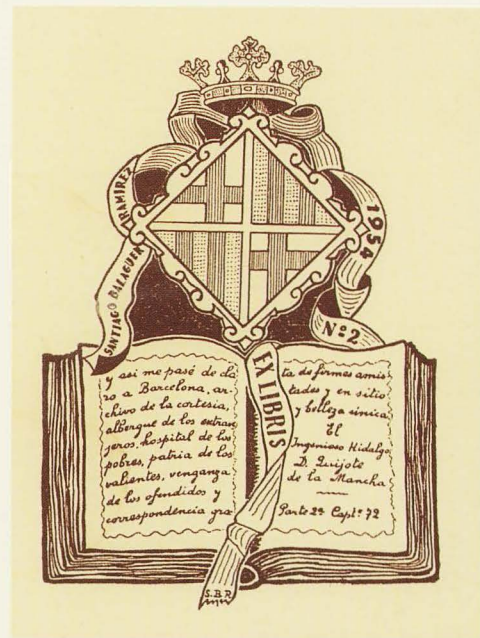 SANTIAGO BALAGUER RAMIREZ
1954
Nº2
EX LIBRIS
y asi me pasé de cla
ro a Barcelona, ar-
chivo de la cortesia,
albergue de los extran
jeros, hospital de los
pobres, patria de los
valientes, venganza
de los ofendidos y
correspondencia gra
ta de firmes amis-
tades y en sitio
y belleza única
El
Ingenioso Hidalgo
D. Quijote
de la Mancha
Parte 2ª Capt.º 72
S.B.R.